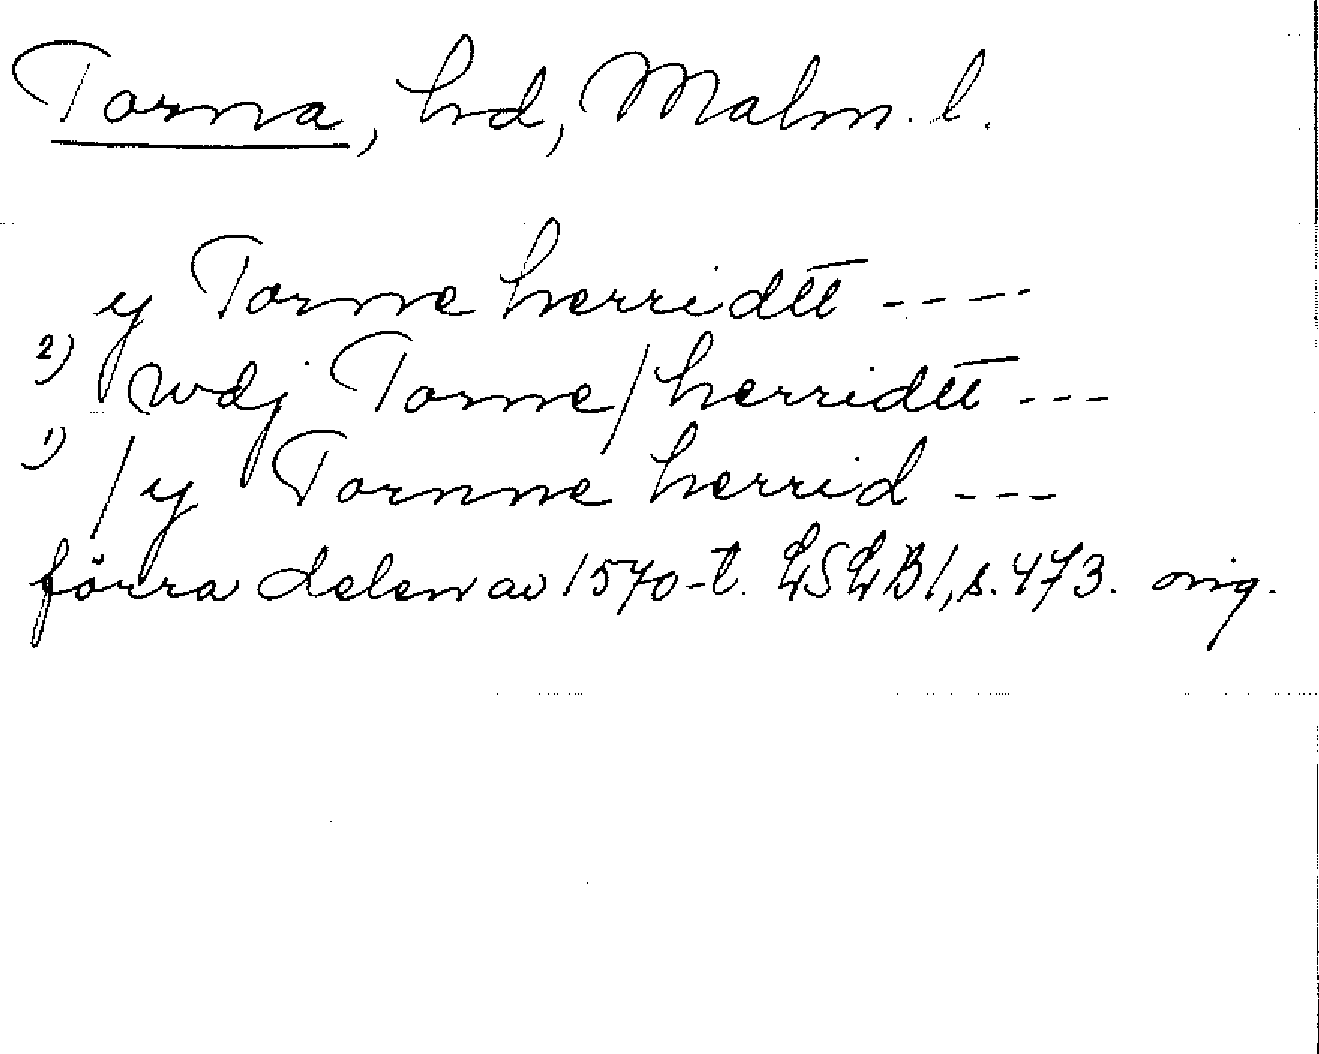 Torna, hd, Malm. l.
y Torne herridtt ----
2) wdj Torne/herridtt ---
1) /y Tornne herrid ---
förra delen av 1570-t. LSLB 1, s. 473. orig.